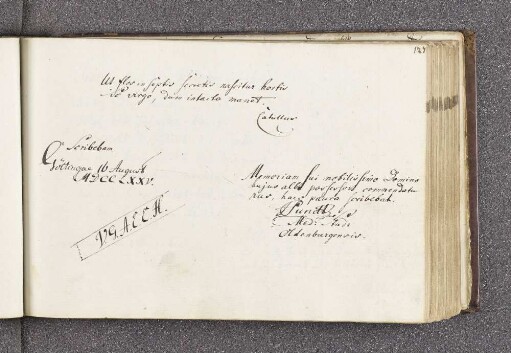 Ut flos in septis secretis nascitur hortis
sic virgo, dum intacta manet
Catullus
Scribebam
Göttingae 16 August
MDCCLXXV.
Memoriam sui nobilissimo Domino
hujus albi possessori, commendatu
rus, haec pauca scribebat.
Med: Stud:
Oldenburgensis.